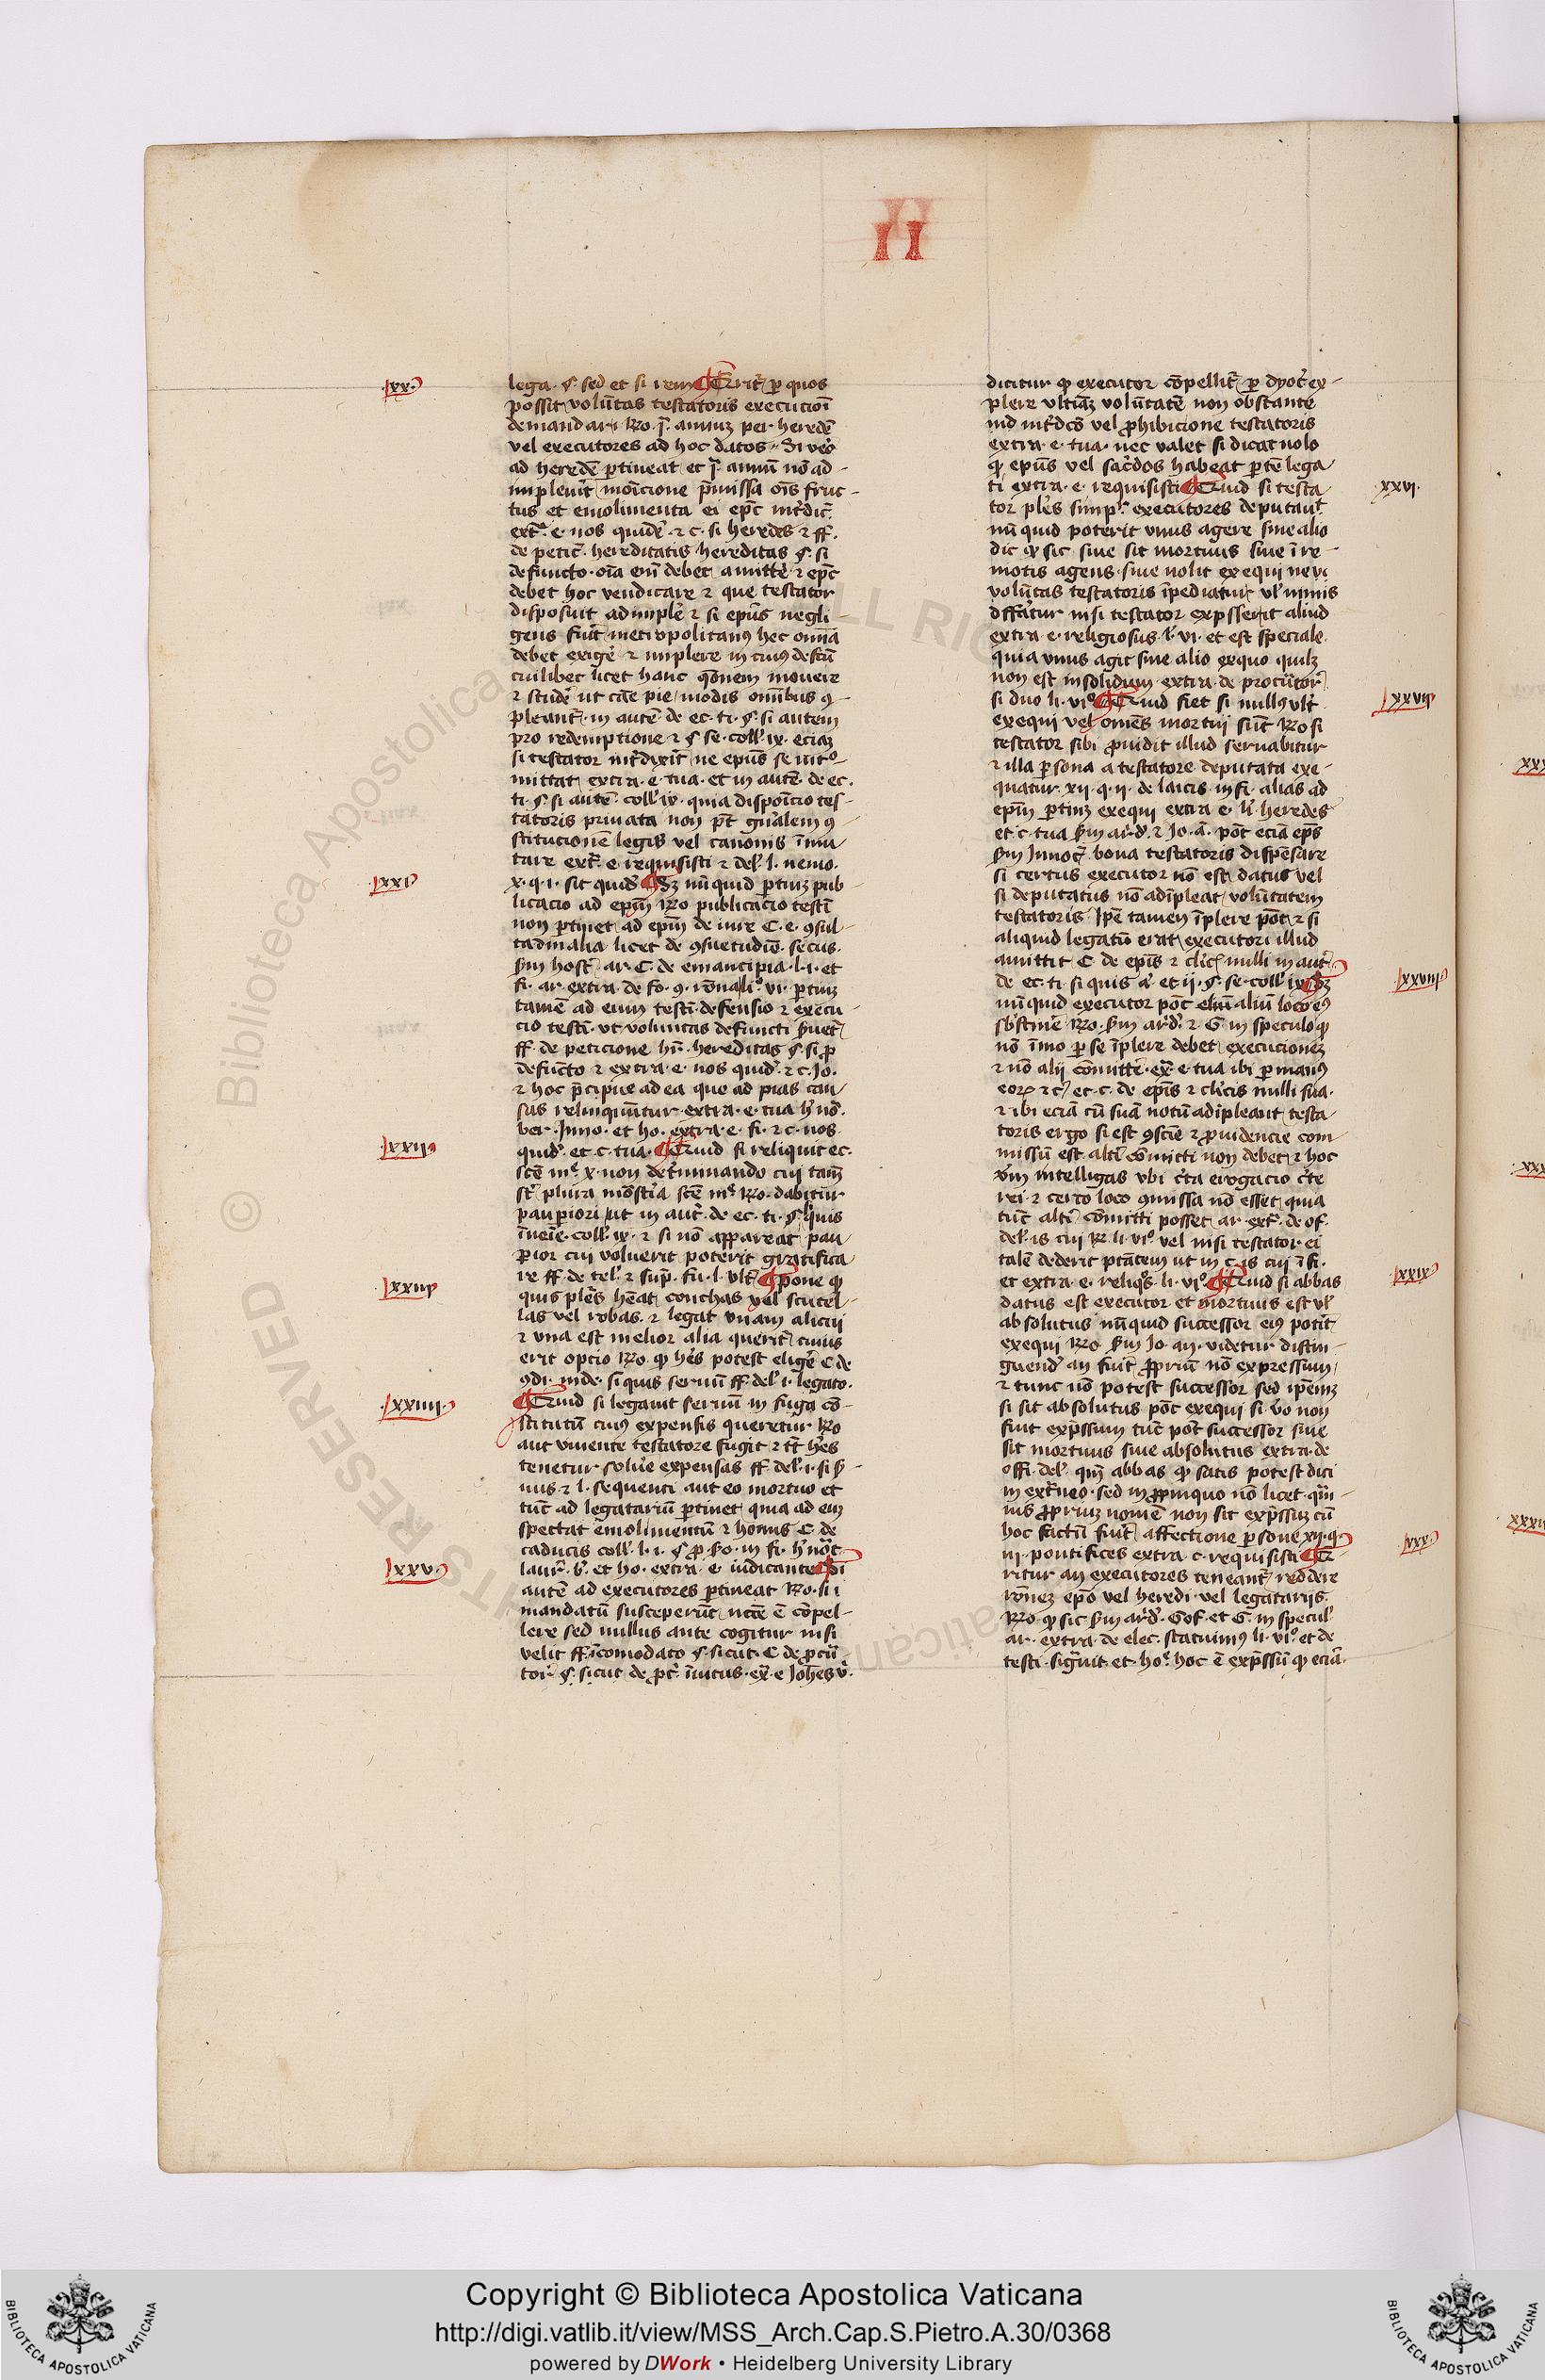 II
·xx·
lega · §· sed et si rem ¶ Querit̄ ꝑ quos
possit volūtas testatoris execucioī
demandari Ro· j᷒· annuꝫ per heredē
vel executores ad hoc datos · Si v̓o
ad heredē ꝑtineat et j᷒· annū nō ad-
impleuit̄ monicione p̄missa oīs fruc-
tus et emolimenta ei ep̄c int̓dic̄
ext᷒· e· nos quidē · ⁊ c· si heredes ⁊ ff·
de petic̄· hereditatis hereditas §· si
defuncto · oīa enī debet amitte̓ ⁊ ep̄c
debet hoc vendicare ⁊ que testator
disposuit adimple̓ ⁊ si ep̄us negli-
gens fuit̄ metropolitanꝰ hec omīa
debet exige̓ ⁊ implere in cuiꝰ defcū
cuilibet licet hanc q̄onem mouere
⁊ stude̓ ut cāe pie modis omībus ꝯ-
pleant̄ · in autē· de ec· ti· §· si autem
pro redemptione ⁊ § se· coll̓ ix· eciaꝫ
si testator int̓dixit̄ ne ep̄us se int᷒o-
mittat extra · e· tua· et in autē· de ec·
ti· §· si autē· coll̓ ix· quia dispoīcio tes-
tatoris priuata non pōt gn̄alem ꝯ-
stitucionē legis vel canonis īmu-
tare ext᷒· e· requisisti ⁊ del̓· l· nemo·
xxi
x· q· i· sic quidē ¶ Sꝫ nūquid ꝑtinꝫ pub-
licacio ad ep̄m Ro publicacio testī
non ꝑtinet ad ep̄m de iure C· e· ꝯsul-
ta diualia licet de ꝯsuetudīe· secus·
ẜm host̄· ar· C· de emancipa· l· i· et
fi· ar· extra· de fo· ꝯ· rōnali᷒o vi· ꝑtinꝫ
tamē ad eum testī· defensio ⁊ execu-
cio testī· ut voluntas defuncti ẜuet̄
ff· de peticione hr̄· hereditas §· si ꝓ
defūcto ⁊ extra · e· nos quid᷒· ⁊ c· Jo·
⁊ hoc p̄cipue ad ea que ad pias cau-
sas relinquūtur · extra· e· tua h̓ nō·
ber· Inno· et ho· extra· e· fi· ⁊ c· nos·
xxii
quid᷒· et c· tua· ¶ Quid si reliquit ec·
scē m᷒· x· non det̓minando cui tam̄
sꝫ plura mōst̓ia scē m᷒· Ro· dabitur
pauꝑiori ut in aut̄· de ec· ti· § si quis
ineīe· coll̓ ix· ⁊ si nō appareat pau-
ꝑior cui voluerit poterit gratifica-
xxiii
re ff· de tel̓· ⁊ sup̄· fu· l· vlt̄ ¶ Pone ꝙ
quis pl̄es hēat conchas vel scutel-
las vel robas· ⁊ legat vnam alicui
⁊ vna est melior alia querit̄ cuius
erit opcio Ro· ꝙ h̓es potest elige̓ C de
ꝯdi· inde· si quis seruū ff· del̓· i· legato·
xxiiii
¶ Quid si legauit seruū in fuga cō-
stitutū cuiꝰ expensis queretur Ro
aut viuente testatore fugit ⁊ tc̄ h̓es
tenetur solue̓ expensas ff· del̓· i· si ẜ-
uus ⁊ l· sequenti aut eo mortuo et
tūc ad legatariū ꝑtinet quia ad eū
spectat emolimentū ⁊ honus C· de
caducis toll̓· l· i· § ꝓ ẜo· in fi· h̓ nōt̄
xxv
laur̄· b̓· et ho· extra· e· iudicante ¶ Si
autē ad executores ꝑtineat Ro· si i
mandatū susceperūt nc̄cē ē cōpel-
lere sed nullus ante cogitur nisi
velit ff· comodato §· sicut· C de pcū-
tor̄ §· sicut de pc̓· īuitus· ex̄· e Joh̄es v̓·
dicitur ꝙ executor cōpellit̄ ꝑ dyoc̄ ex-
plere vltiā volūtatē non obstante
ind int̓dc̄o vel ꝓhibicione testatoris
extra· e· tua· nec valet si dicat nolo
ꝙ ep̄us vel sac̓dos habeat ꝑtē lega-
xxvi·
ti extra· e· requisisti ¶ Quid si testa-
tor pl̄es simp᷒r executores deputaūt
nū quid poterit vnus agere sine alio
dic ꝙ sic siue sit mortuus siue ī re-
motis agens siue nolit exequi ne vi
volūtas testatoris īpediatur vl̓ nimis
diffātur nisi testator exp̄sserit aliud
extra· e· religiosus· l᷒· vi· et est speciale
quia vnus agit sine alio ex quo quilꝫ
non est in solidum extra· de procūtor̄
xxvii
si duo li· vi᷒o ¶ Quid fiet si nullꝰ vlt̄
exequi vel omēs mortui sūt Ro si
testator sibi ꝓuidit illud seruabitur
⁊ illa ꝑsona a testatore deputata exe-
quatur xii· q· ii· de laicis in fi· alias ad
ep̄m ꝑtinꝫ exequi extra e· li᷒ heredes
et c· tua ẜm ar·d̓· ⁊ Jo· ā· pōt eciā ep̄s
ẜm Innoc̄· bona testatoris dispēsare
si certus executor nō est datus vel
si deputatus nō adīpleat volūtatem
testatoris Ip̄e tamen īplere pōt ⁊ si
aliquid legatū erat executori illud
amittit C de ep̄is ⁊ cl̓icꝭ nulli in aut̄
xxviii
de ec· ti· si quis a̓ et ii· §· se· coll̓ ix ¶ Sꝫ
nū quid executor pōt aliū loco eiꝰ
sb̓stūe̓ Ro· ẜm ard᷒· ⁊ G· in speculo ꝙ
nō īmo ꝑ se īplere debet execucioneꝫ
⁊ nō alii cōmitte̓· ex̄· e· tua ibi ꝑ manꝰ
eorꝫ ⁊ c̓ et· c· de ep̄is ⁊ cl̓icis nulli sua·
⁊ ibi eciā cū suā notū adīpleant testa-
toris ergo si est ꝯsciē ⁊ ꝓuidencie com-
missū est alt̓i cōmitti non debet ⁊ hoc
v̓m intelligas vbi c̓ta erogacio c̓te
rei ⁊ certo loco ꝯmissa nō esset quia
tūc alt̓i cōmitti posset ar· ext᷒· de of·
del̓· is cui R li· vi᷒o· vel nisi testator ei
talē dederit ptātem ut in c· is cui ī fi·
xxix
et extra· e· reliqꝰ· li· vi᷒o· ¶ Quid si abbas
datus est executor et mortuus est vl̓
absolutus nū quid successor eiꝰ potit̄
exequi Ro ẜm Jo· an· videtur distin-
guend᷒ an fuit̄ ꝓpriū nō expressum
⁊ tunc nō potest successor sed ip̄emꝫ
si sit absolutus pōt exequi si v̓o non
fuit exp̄ssum tūc pōt successor siue
sit mortuus siue absolutus extra· de
offi· del̓· qm̄ abbas ꝙ satis potest dici
in ext̓neo· sed in ꝓpinquo nō licet· qm̄-
uis ꝓprium nomē non sit exp̄ssuꝫ cū
hoc factū fuit̄ affectione ꝑsone xii· q·
·xxx·
iii· pontifices extra· c· requisisti ¶ Que-
ritur an executores teneant̄ reddere
rōneꝫ ep̄o vel heredi vel legatarijs
Ro ꝙ sic ẜm ard᷒· Gof· et G· in specul̓
ar· extra· de elec· statuimꝰ li· vi᷒o· et de
testi· sig̓uit et ho᷒· hoc ē exp̄ssū ꝙ eciā·
Copyright © Biblioteca Apostolica Vaticana
http://digi.vatlib.it/view/MSS_Arch.Cap.S.Pietro.A.30/0368
powered by DWork • Heidelberg University Library
BIBLIOTECA APOSTOLICA VATICANA
BIBLIOTECA APOSTOLICA VATICANA